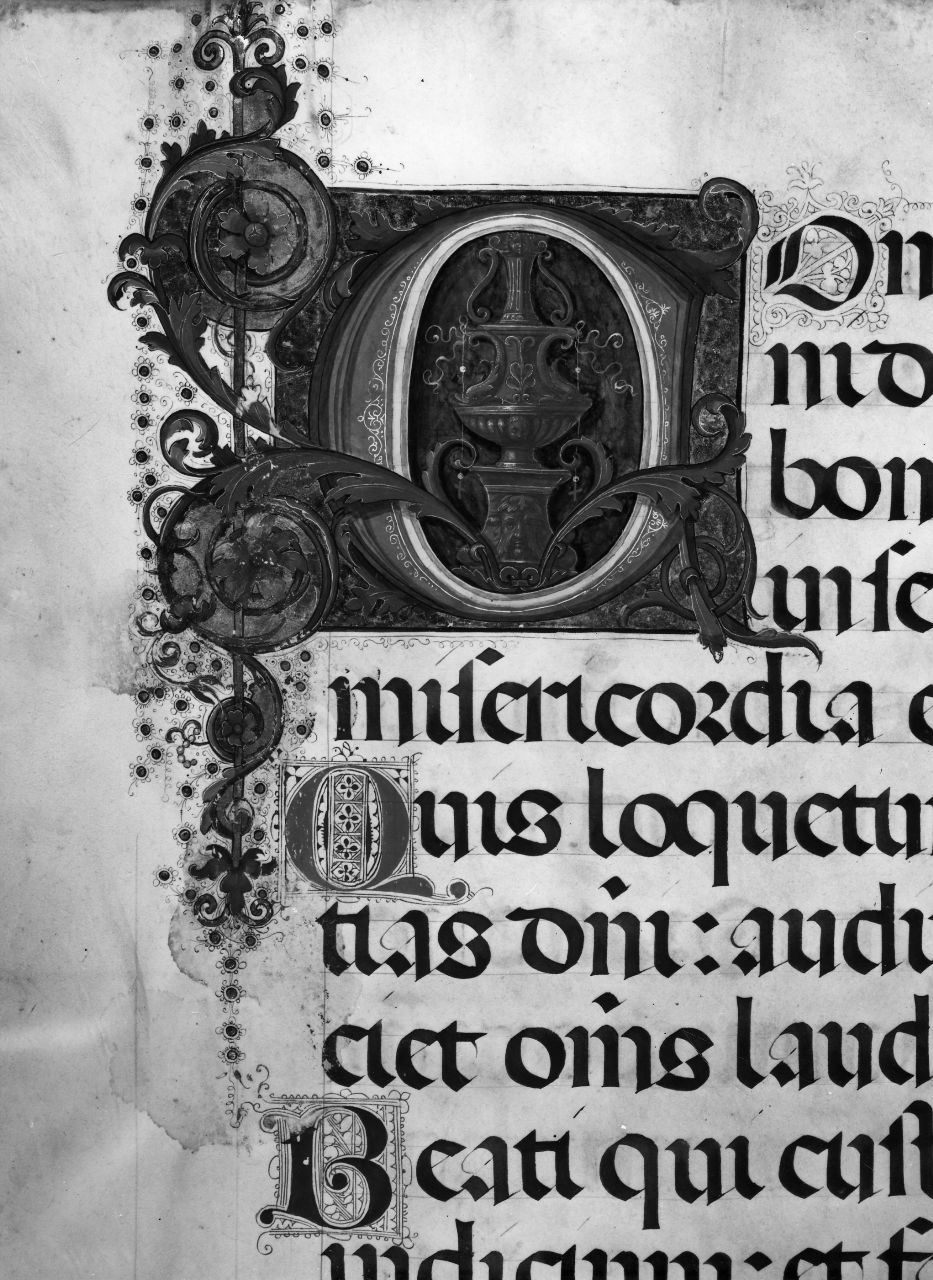 COn
ni do
bon
in ſe
miſericordia e
Quis loquetur
tias dn̄i: audi
ciet om̄s laud
Beati qui cuſt
iudicium: et fa